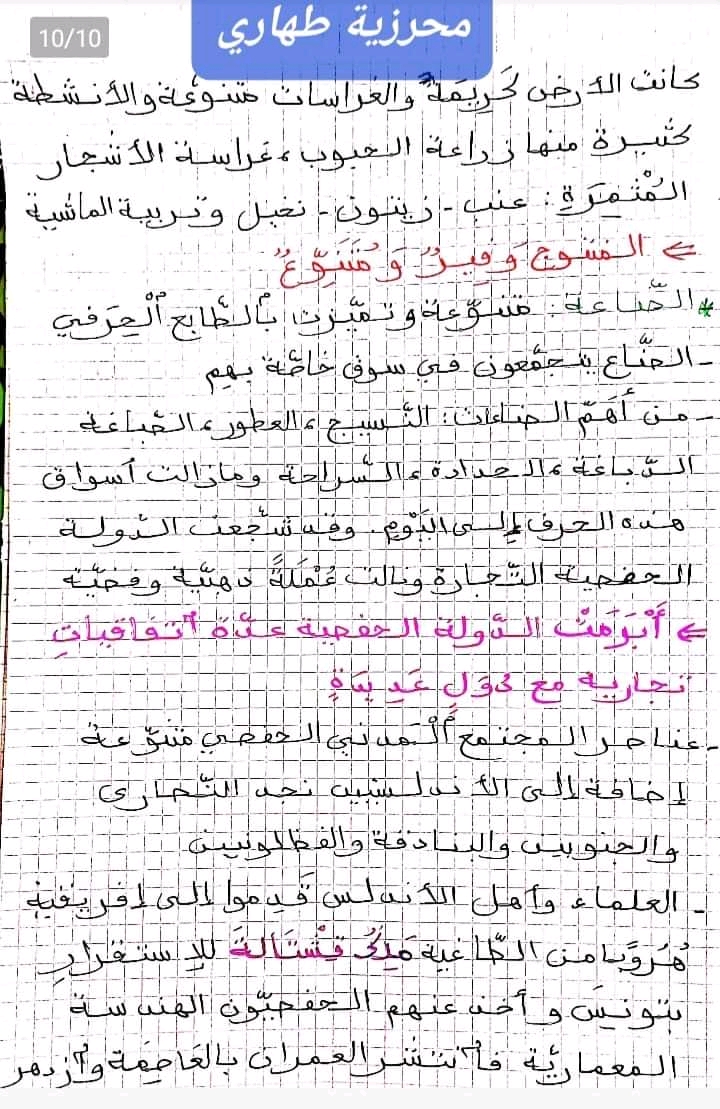 محرزية طهاري
10/10
كانت الأرض كَرِيمَةً والغراسات متنوّعة والأنشطة
كثيرة منها زراعة الحبوب، غراسة الأشجار
المُثْمِرَةِ: عنب - زيتون - نخيل وتربية الماشية
⇐ المنتوج وَفِيرٌ وَمُتَنَوِّعٌ
* الصّناعة: متنوّعة وتميّزت بالطّابع الْحِرَفي
- الصنّاع يتجمّعون في سوق خاصّة بهم
- من أهمّ الصناعات: النّسيج، العطور، الصّباغة
الدّباغة، الحدادة، السّراجة ومازالت أسواق
هذه الحرف إلى اليَوْمِ. وقد شجّعت الدّولة
الحفصية التّجارة ونالت عُمْلَةً ذهبيّة وفضيّة
⇐ أَبْرَمَتْ الدّولة الحفصية عدّة اتفاقيات
تجارية مع دُوَلٍ عَدِيدَةٍ
- عناصر المجتمع الْمَدني الحفصي متنوّعة
إضافة إلى الأندلسيين نجد النّصارى
والجنويين والبنادقة والقطلونيين
- العلماء وأهل الأندلس قَدِموا إلى إفريقية
هُرُوبًا من الطّاغية مَلِكُ قَشْتَالَةَ للاستقرار
بتونس وأخذ عنهم الحفصيّون الهندسة
المعماريّة فانتشر العمران بالعَاصِمَة وازدهر